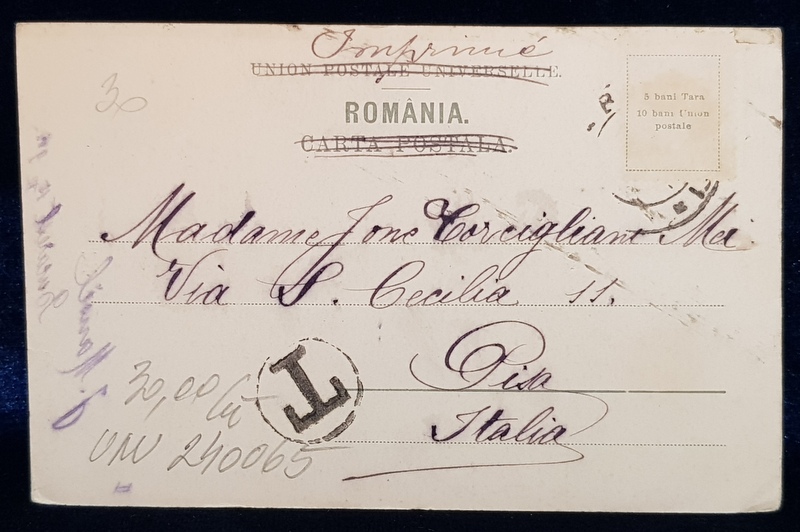 Imprimé
UNION POSTALE UNIVERSELLE.
ROMÂNIA.
CARTA POSTALA.
30
5 bani Tara
10 bani Union
postale
Madame Jone Corcigliani Mei
Via S. Cecilia 11.
Pisa
Italia
T
30,00
UNV 240065